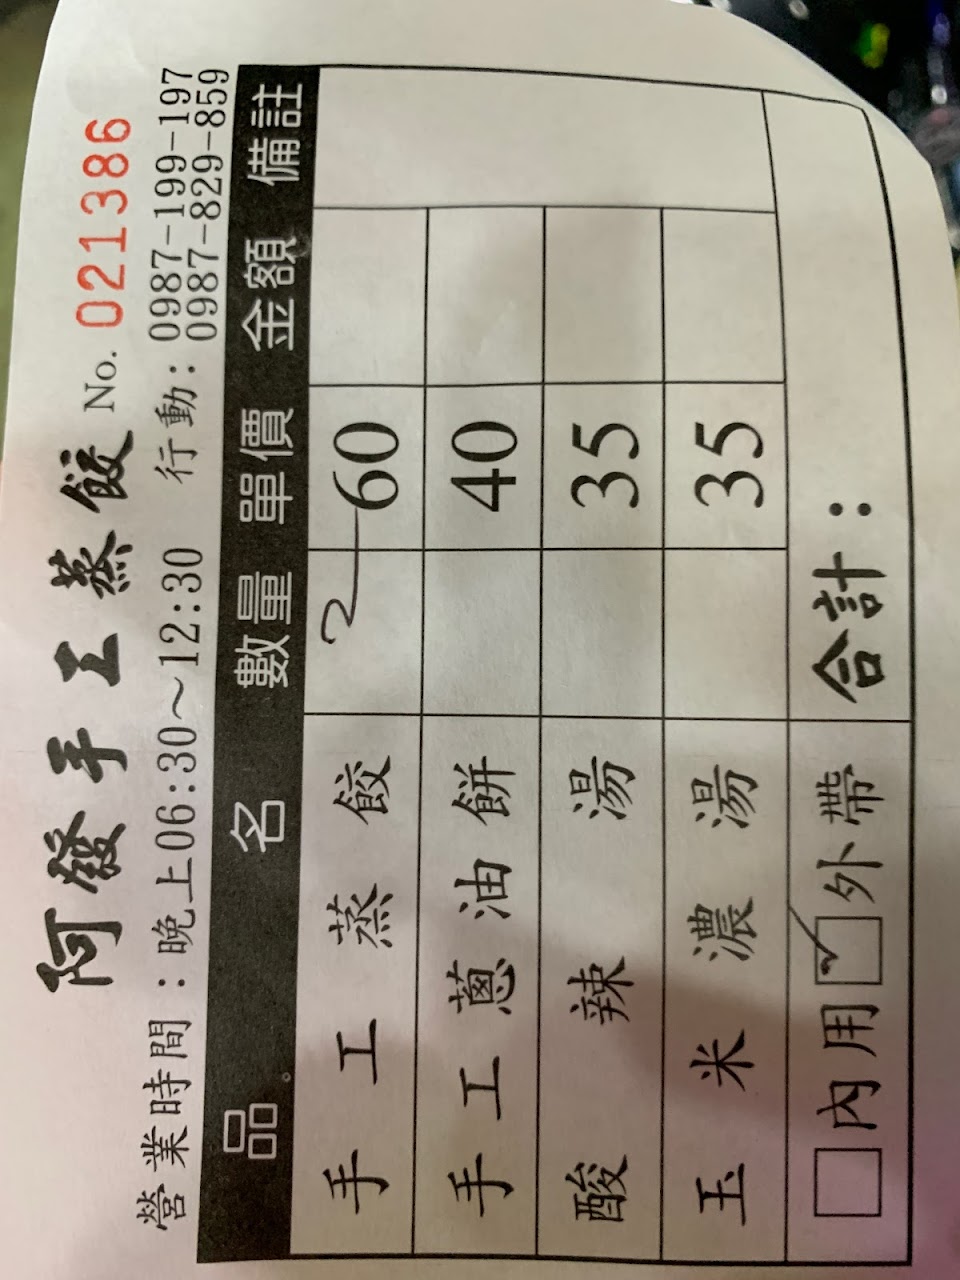 阿發手工蒸餃 No. 021386
營業時間：晚上06:30～12:30 行動：0987-199-197
0987-829-859
品名 數量 單價 金額 備註
手工蒸餃 2 60
手工蔥油餅 40
酸辣湯 35
玉米濃湯 35
□內用 ☑外帶 合計：